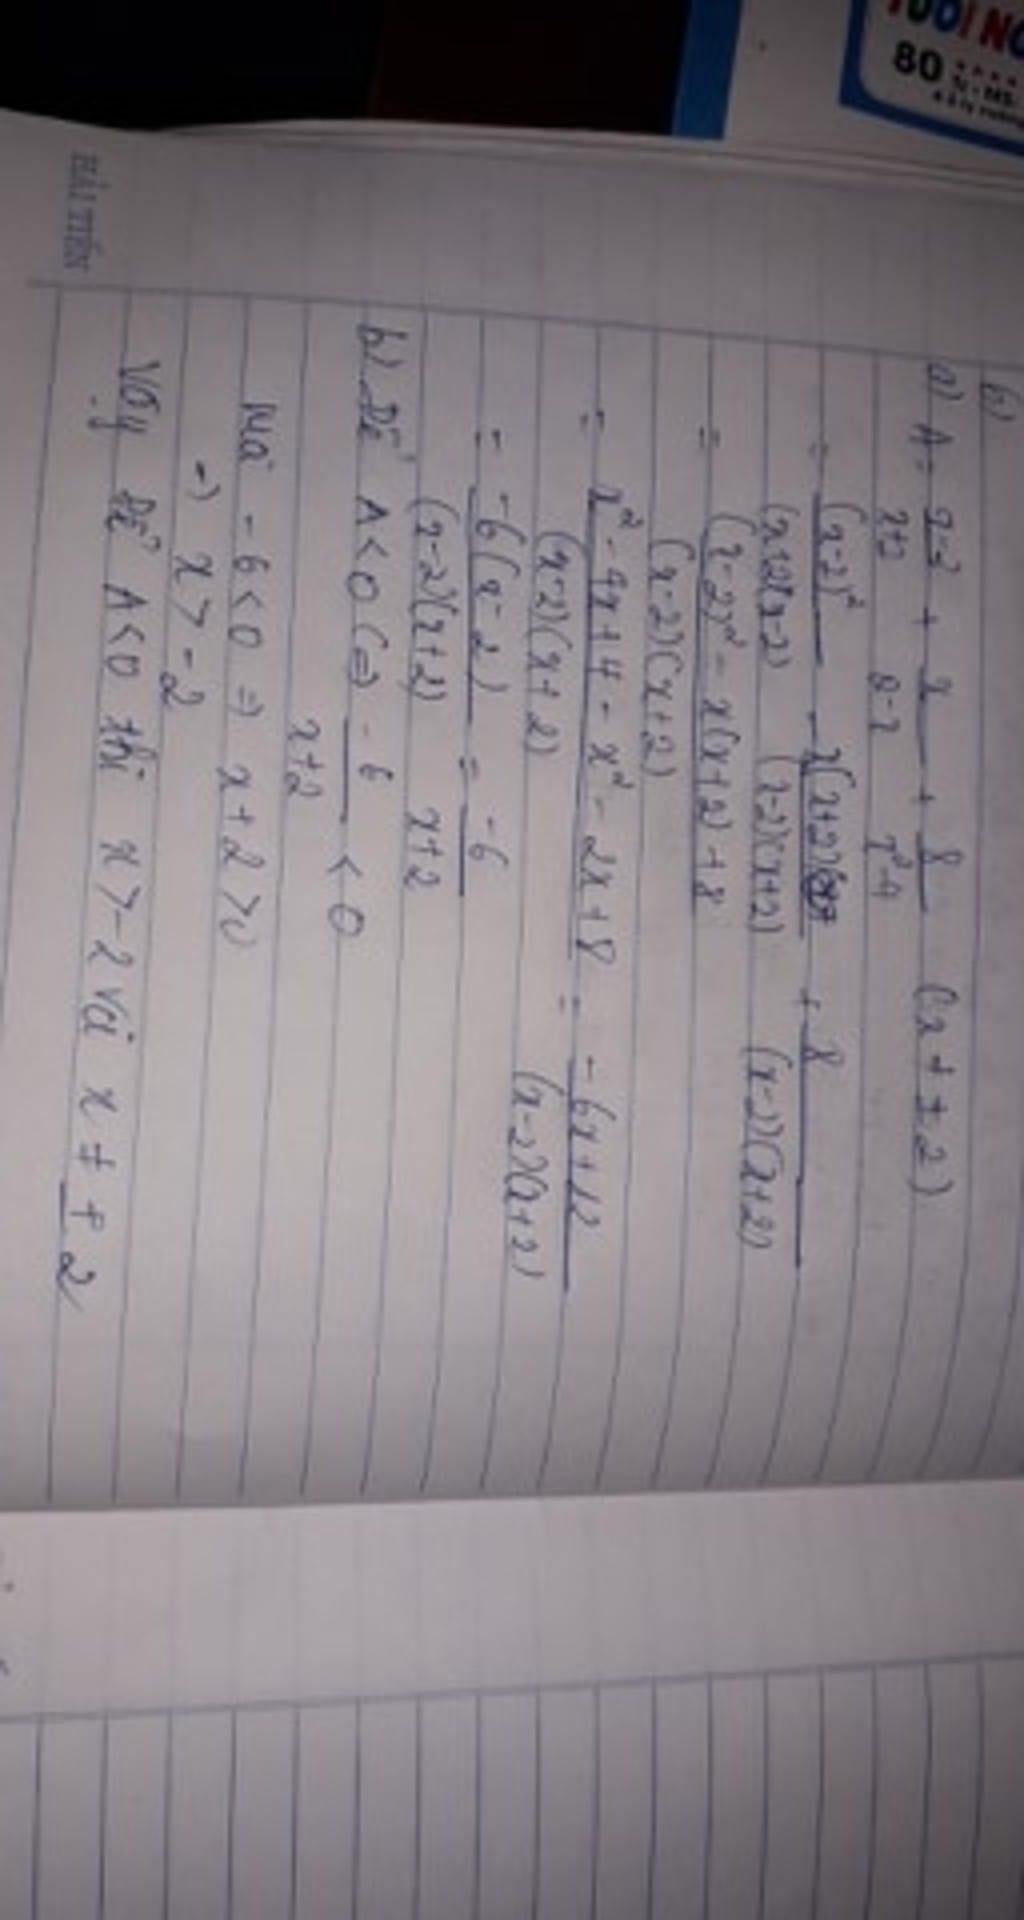 80
HẢI TIẾN
6)
a) A = x-2/x+2 + x/2-x + 8/x²-4 (x ≠ ±2)
= (x-2)²/(x+2)(x-2) - x(x+2)/(x-2)(x+2) + 8/(x-2)(x+2)
= (x-2)² - x(x+2) + 8/(x-2)(x+2)
= x² - 4x + 4 - x² - 2x + 8/(x-2)(x+2) = -6x+12/(x-2)(x+2)
= -6(x-2)/(x-2)(x+2) = -6/x+2
b) Để A < 0 (=) -6/x+2 < 0
Mà -6 < 0 => x+2 > 0
-) x > -2
Vậy để A<0 thì x > -2 và x ≠ ±2